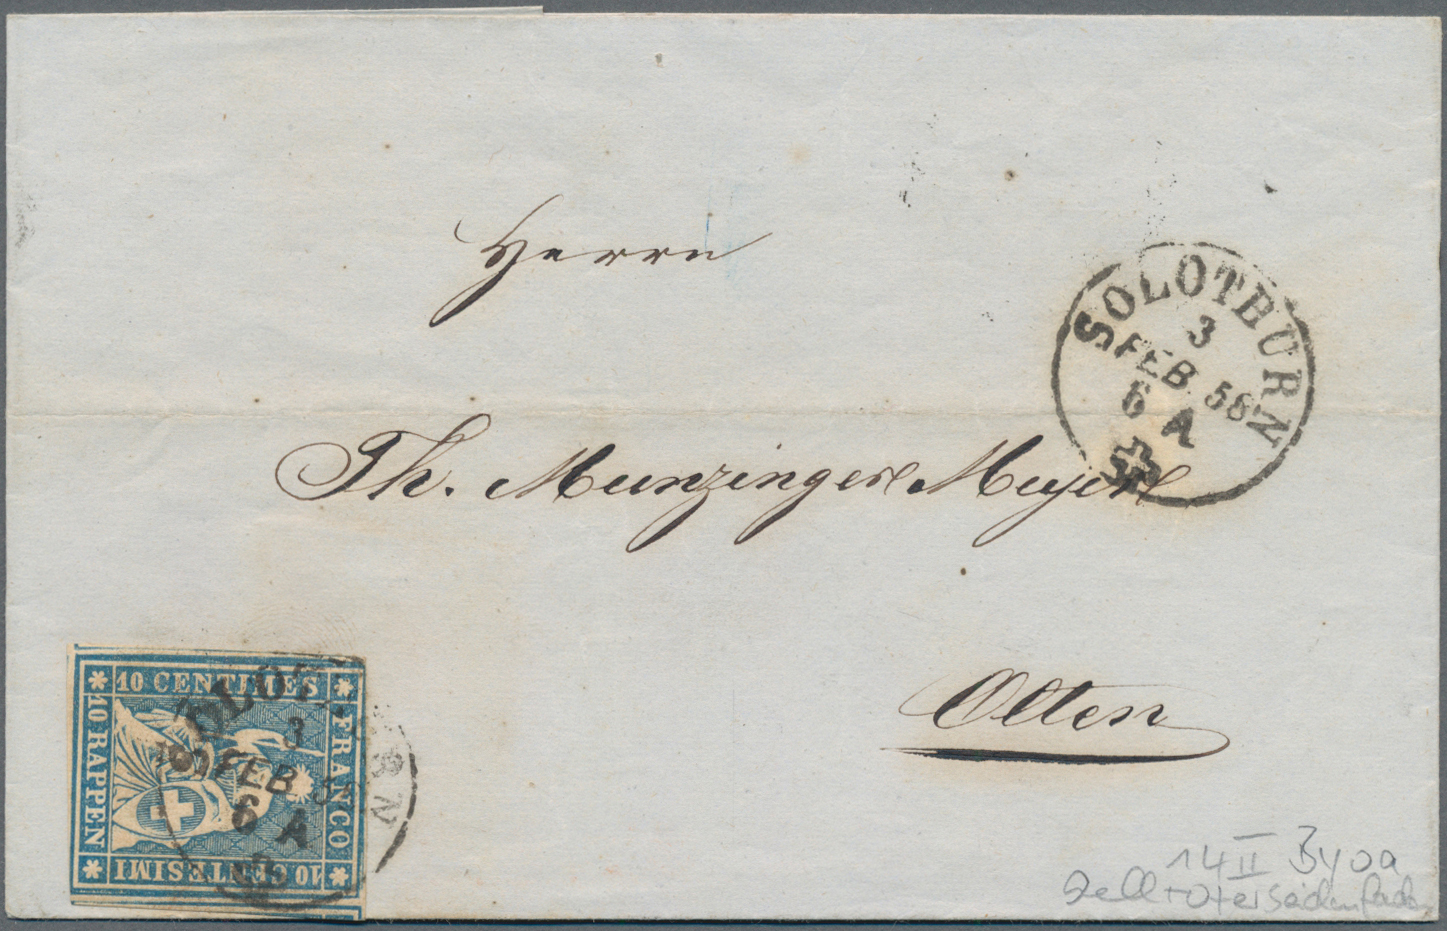 Herrn
SOLOTHURN
3
FEB 58
6 A
Th. Munzinger Meyer
Olten
10 CENTIMES
FRANCO
10 CENTESIMI
10 RAPPEN
3
FEB 5
6 A
14 II Byoa
hellroter Seidenfaden